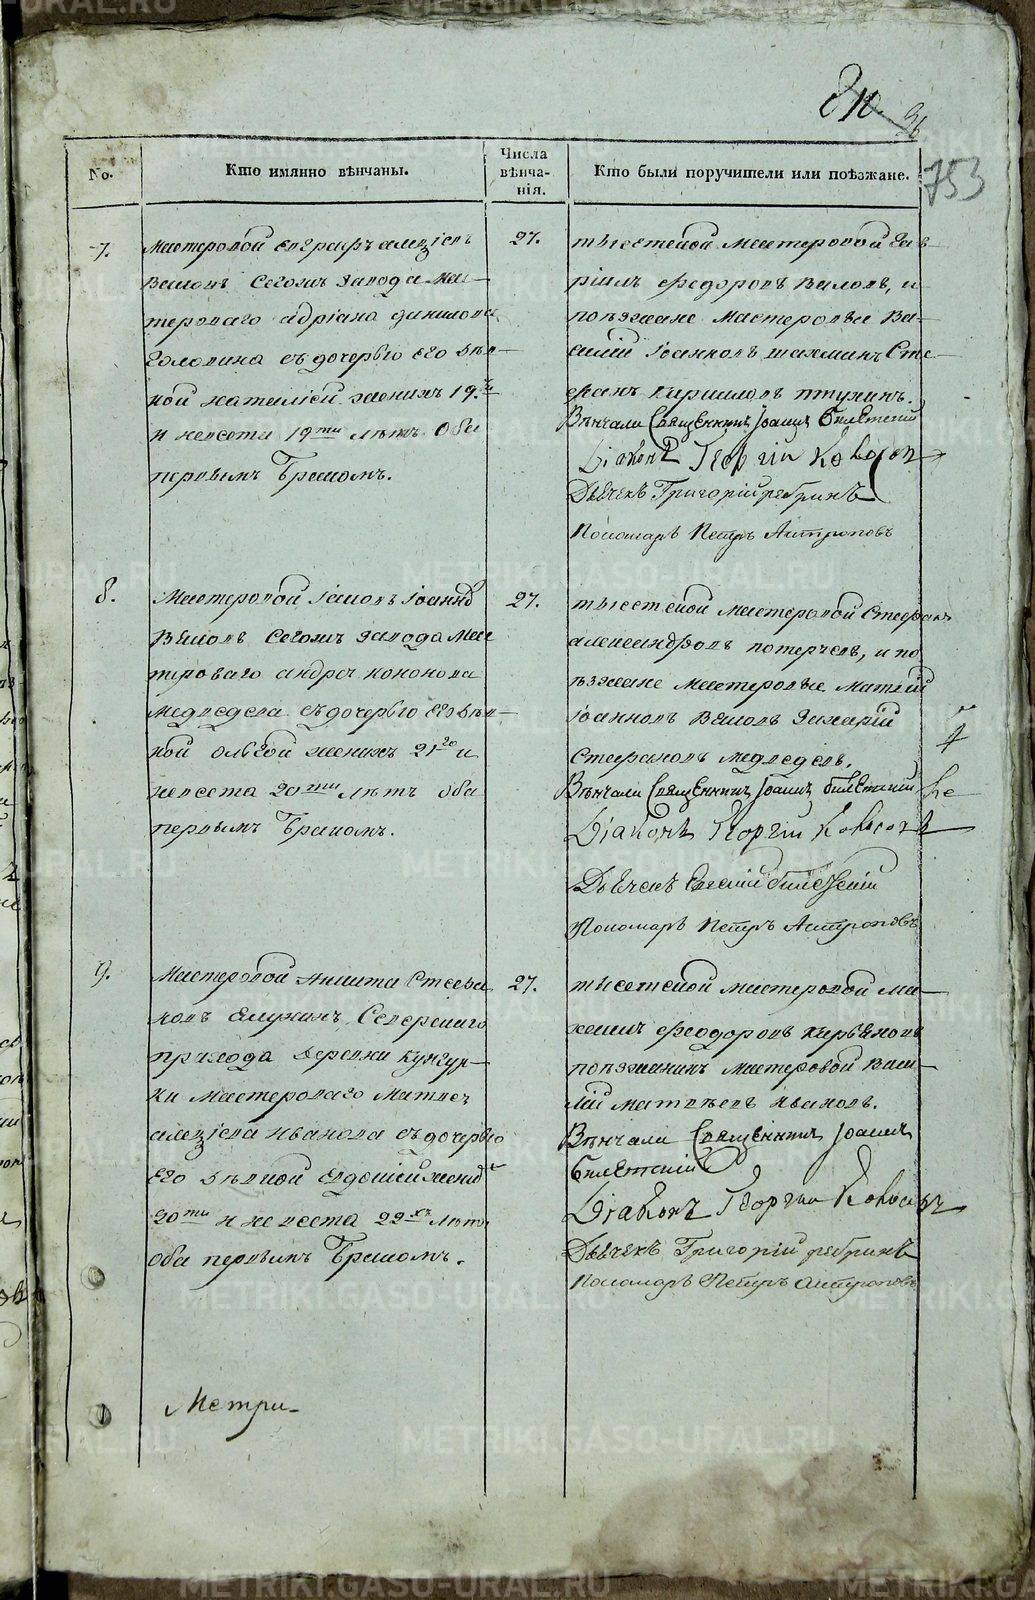 36
753
No.
Кто имянно вѣнчаны.
Числа вѣнча-
нія.
Кто были поручители или поѣзжане.
7.
Мастеровой Евграфъ алеѯіевъ
Сегожъ завода Мас-
тероваго адріана данилова
Головина съ дочерью его дѣв-
кой наталіей женихъ 19.ти
и невеста 19ти лѣтъ оба
первымъ бракомъ.
27.
тысетской мастеровой Гав-
ріилъ федоровъ Валовъ, и
поѣзжане мастеровые Ва-
силій іоанновъ шахминъ Сте-
фанъ кириловъ птухинъ.
Вѣнчали Священникъ Іоаннъ билетскій
Діаконъ Георгій
Дьячекъ Григорій ребринъ
Пономарь Петръ Антроповъ
8.
Мастеровой іаковъ іоанно
Сегожъ завода Мас
троваго андрея кононова
Медведева съ дочерью его дѣв-
кой ольгой женихъ 21го и
невеста 20ти лѣтъ оба
первымъ бракомъ.
27.
тысетской мастеровой Стефанъ
александровъ потеряевъ, и по
ѣзжане мастеровые матвій
іоанновъ захарій
Стефановъ медведевъ.
Вѣнчали Священникъ Іоаннъ билетскій
Діаконъ Георгій
Дьячекъ билетскій
Пономарь Петръ Антроповъ
9.
Мастеровой никита Стефа
новъ Северскаго
прихода деревни кунгур-
ки мастероваго матвея
алеѯіева иванова съ дочерью
его дѣвкой евдокіей жених
20ти и невеста 22хъ лѣтъ
оба первымъ бракомъ.
27.
тысетской мастеровой Ма-
ксимъ феодоровъ кирьяновъ
поѣзжанинъ мастеровой васи-
лій матвѣевъ ивановъ.
Вѣнчали Священникъ Іоаннъ
билетскій
Діаконъ Георгій
Дьячекъ Григорій ребринъ
Пономарь Петръ Антроповъ
Метри-
METRIKI.GASO-URAL.RU